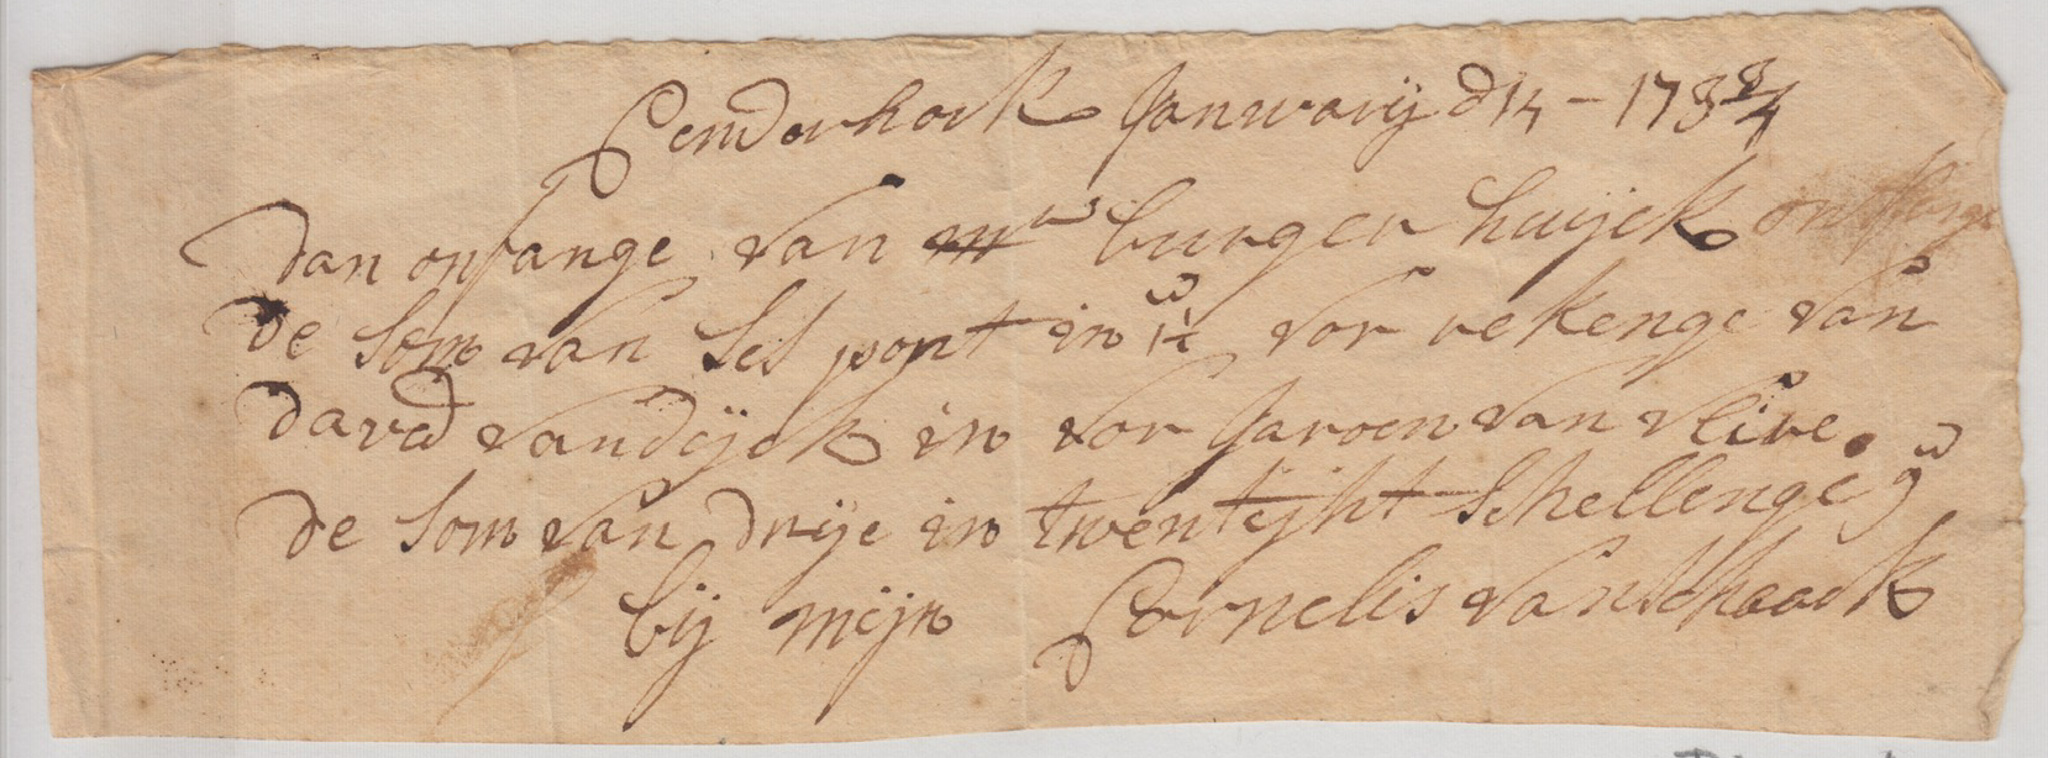 Cenderhock Janwarij d 14 - 173 3/4
dan onfange van mr burger huijck
de som van ses pont in vor rekenge van
david vandijck in vor Jaroen van
de som van drije in twentijht schellenge 9
bij mijn Cornelis van schaack